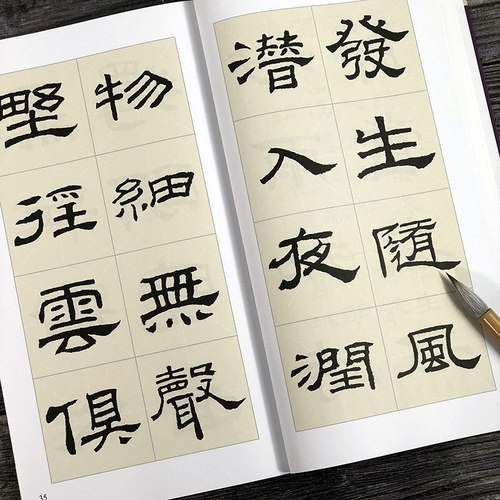 發生隨風
潛入夜潤
物細無聲
野徑雲俱
35